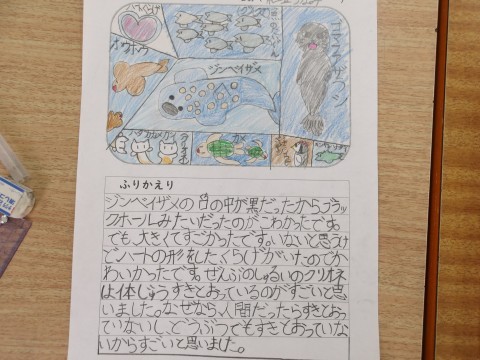 ハートくらげ
ホウボウ
ジンベイザメ
ゴマフアザラシ
ハダカカメガイ
クリオネ
カメ
ふりかえり
ジンベイザメの口の中が黒だったからブラッ
クホールみたいだったのがこわかったです。
でも、大きくてすごかったです。いないと思うけ
どハートの形をしたくらげがいたのでか
わいかったです。ぜんぶのしゅるいのクリオネ
は体じゅうすきとおっているのがすごいと思
いました。なぜなら、人間だったらすきとおっ
ていないし、どうぶつでもすきとおっていな
いからすごいと思いました。